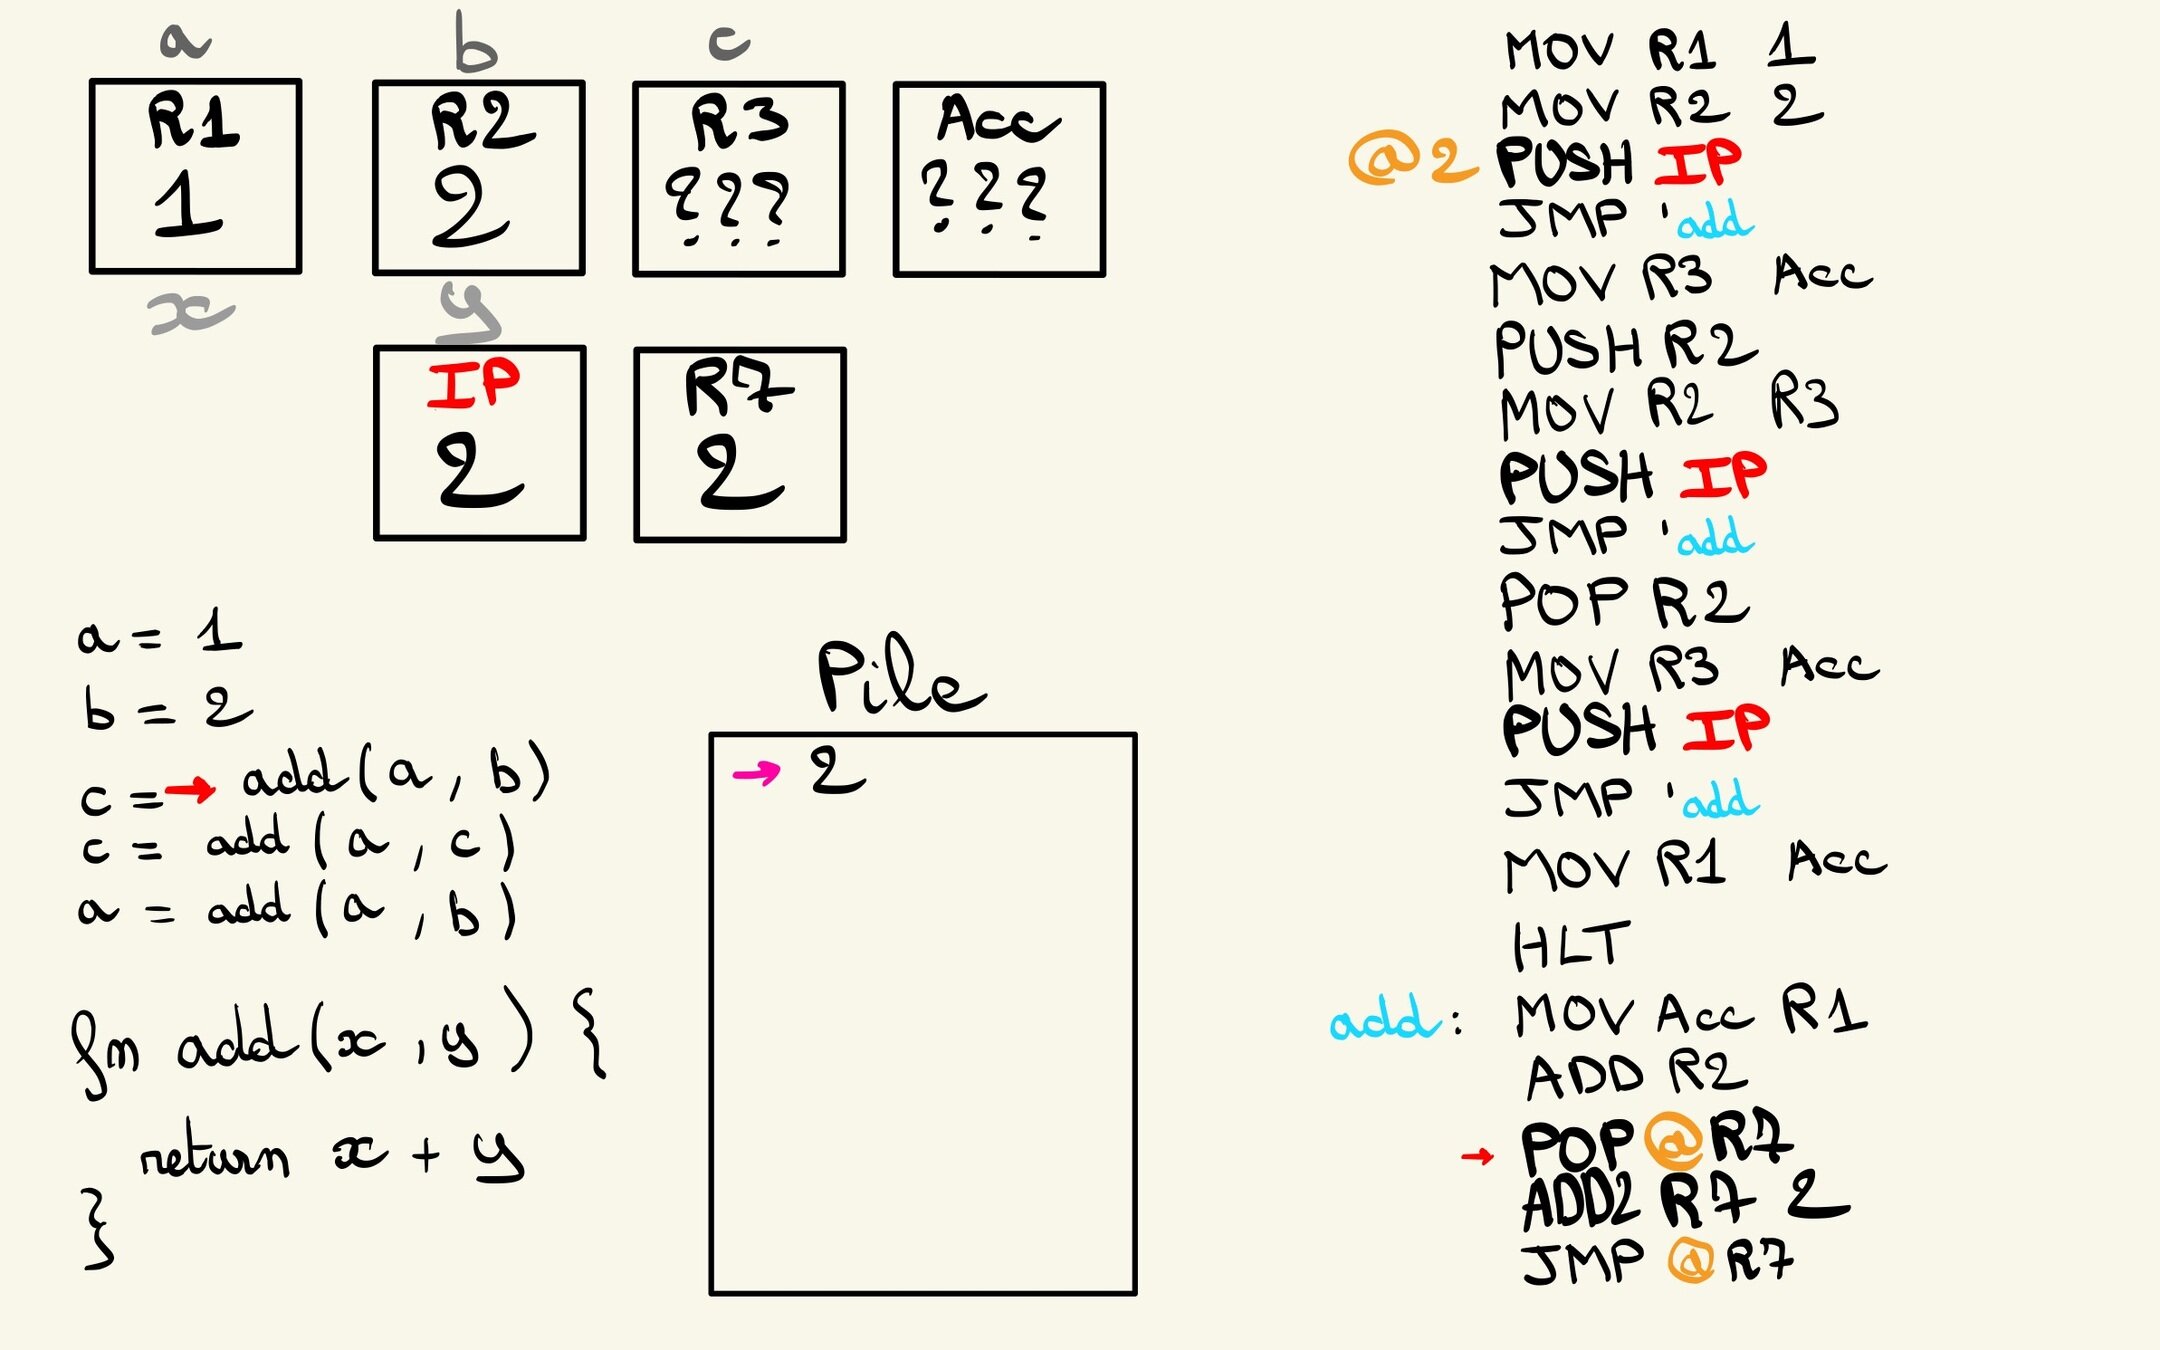 a b c
R1 R2 R3 Acc
1 2 ??? ???
x y
IP R7
2 2
a = 1
b = 2
c = → add(a, b)
c = add(a, c)
a = add(a, b)
fn add(x, y) {
return x + y
}
Pile
→ 2
MOV R1 1
MOV R2 2
@2 PUSH IP
JMP 'add
MOV R3 Acc
PUSH R2
MOV R2 R3
PUSH IP
JMP 'add
POP R2
MOV R3 Acc
PUSH IP
JMP 'add
MOV R1 Acc
HLT
add: MOV Acc R1
ADD R2
→ POP @R7
ADD2 R7 2
JMP @R7